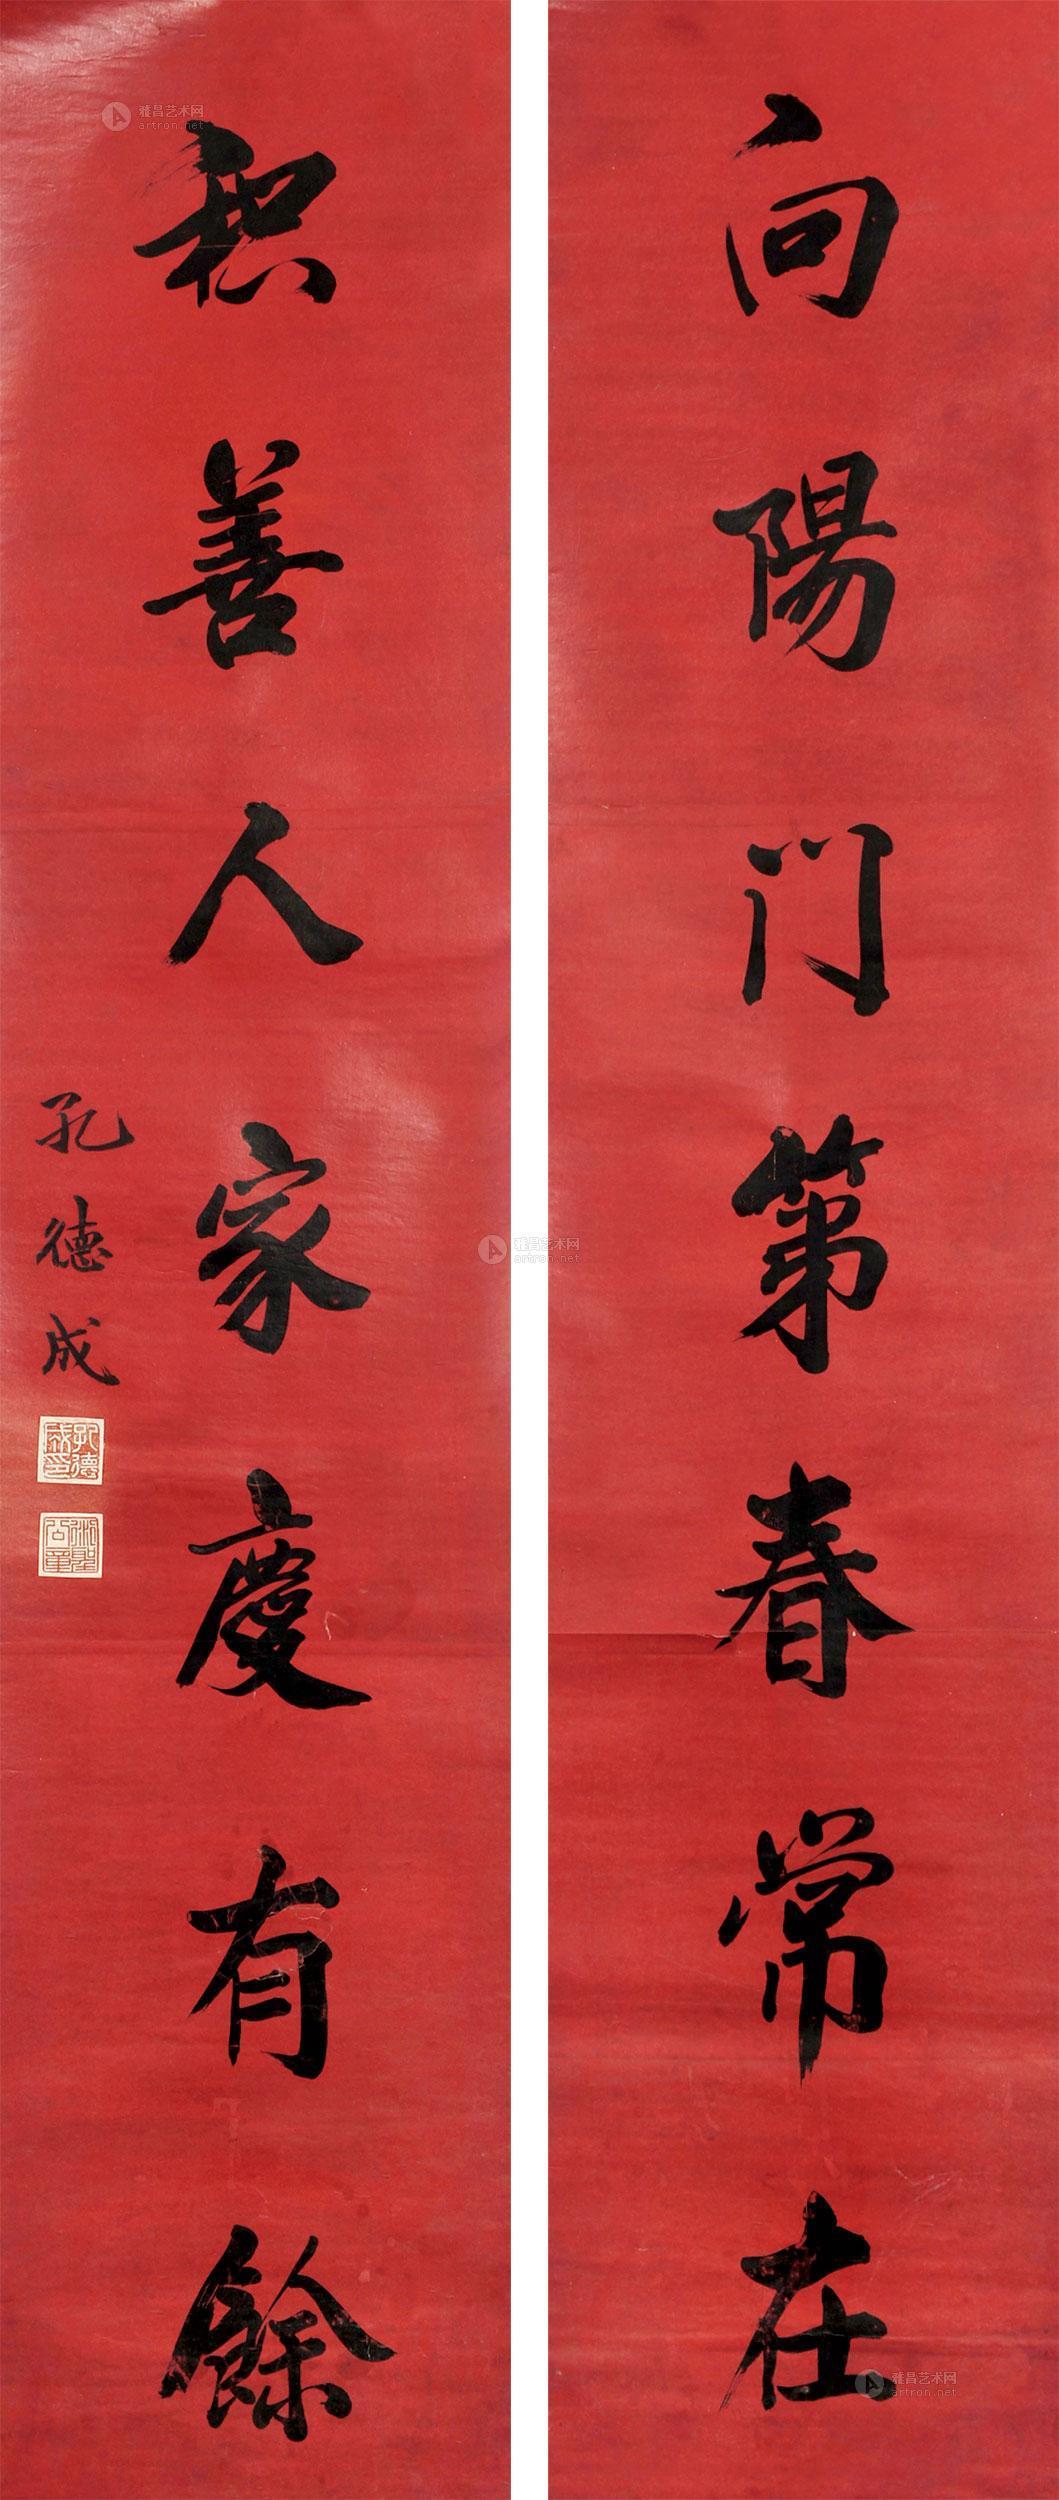 向陽门第春常在
积善人家慶有餘
孔德成
孔德成印
衍聖公章
雅昌艺术网
artron.net
雅昌艺术网
artron.net
雅昌艺术网
artron.net